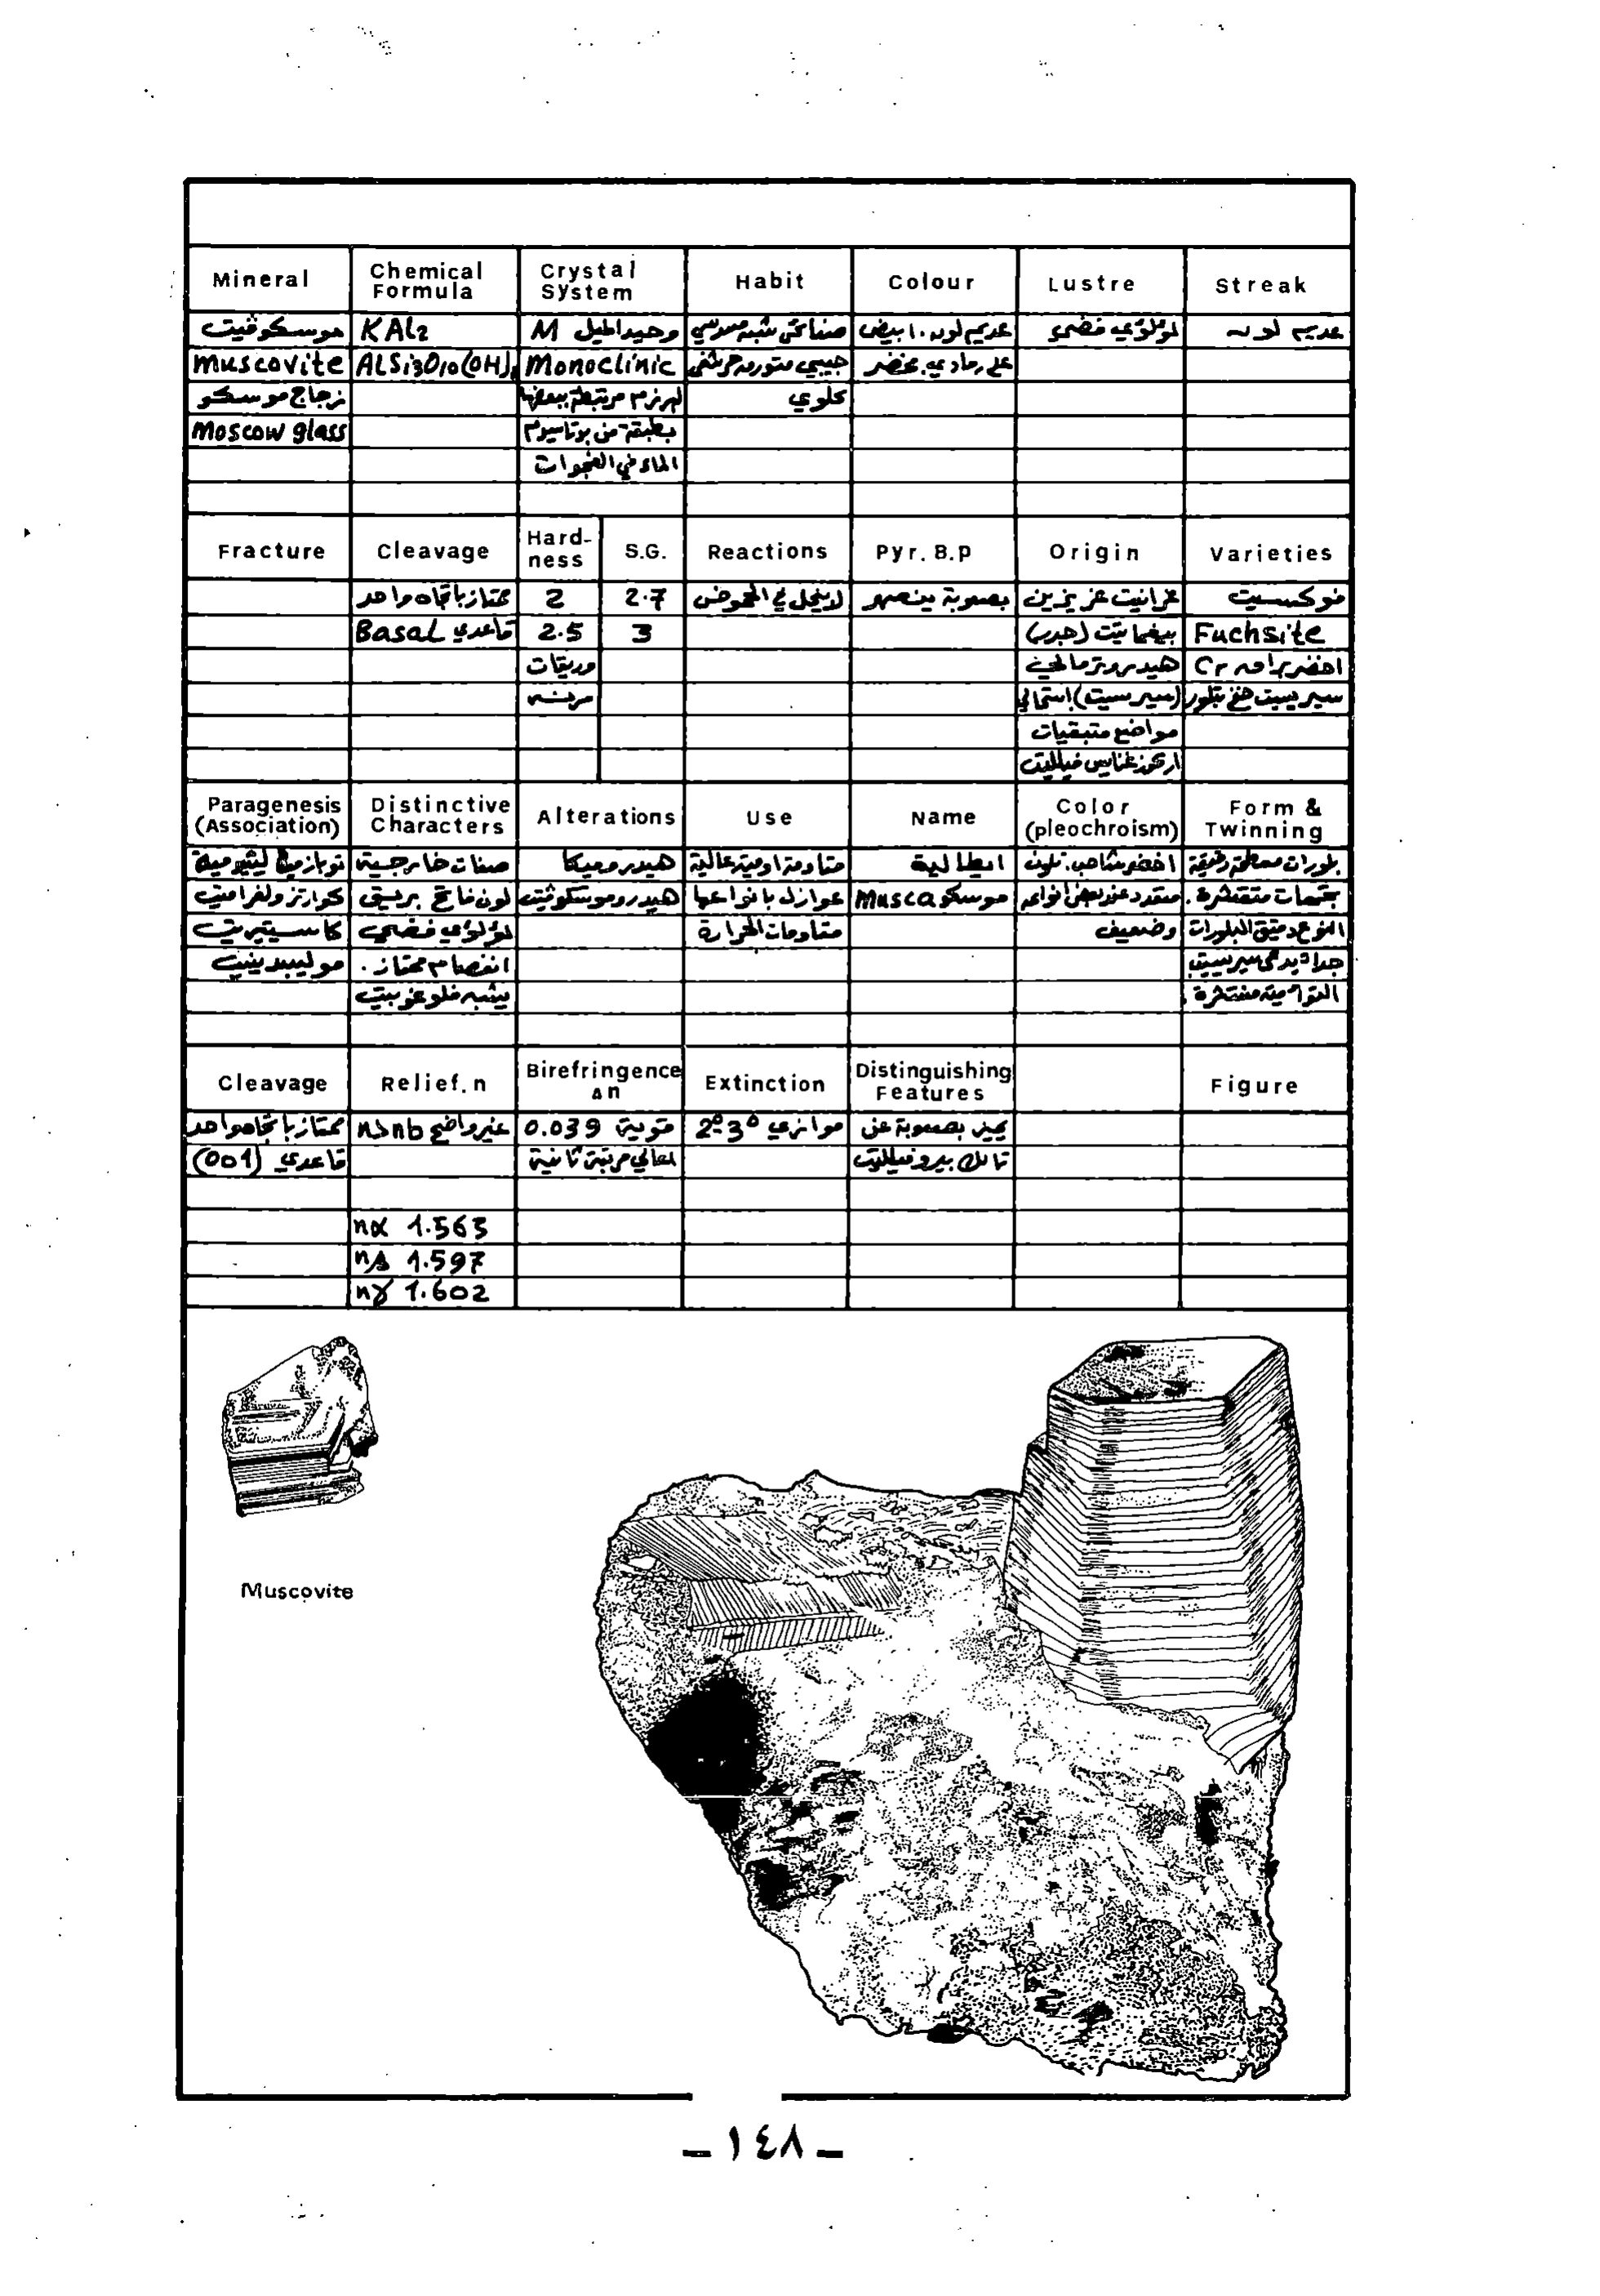 Mineral
Chemical Formula
Crystal System
Habit
Colour
Lustre
Streak
موسكوڤيت
KAl2
وحيد الميل M
صفائحي شبه سدسي
عديم لون، ابيض
لؤلؤي فضي
عديم لون
muscovite
ALSi3O10(OH)2
Monoclinic
جيبي متورد حرشفي
على رمادي مخضر
زجاج موسكو
مرتبطة ببعضها
كلوي
Moscow glass
بطبقة من بوتاسيوم
الماء في الفجوات
Fracture
Cleavage
Hardness
S.G.
Reactions
Pyr. B.p
Origin
Varieties
ممتاز باتجاه واحد
2
2.7
لا ينحل في الحموض
بصعوبة ينصهر
غرانيت غريزين
فوكسيت
قاعدي Basal
2.5
3
بيغماتيت (جدد)
Fuchsite
وريقات
هيدروترمالي
اخضر براق Cr
مرنة
(سيرسيت) استحالي
سيريسيت تبلور
مواضع متبقيات
اركوز غنايس فيلليت
Paragenesis (Association)
Distinctive Characters
Alterations
Use
Name
Color (pleochroism)
Form & Twinning
توباز ميكا ليثيومية
صفات خارجية
هيدروميكا
مقاومة اومية عالية
ايطالية
اخضر شاحب. تلون
بلورات مسطحة رقيقة
كوارتز ولفراميت
لون فاتح بريق
هيدروموسكوڤيت
عوازل بانواعها
موسكو Musca
متعدد عند بعض انواعه
تجمعات متقشرة.
كاسيتيريت
لؤلؤي فضي
مقاومات الحرارة
وضعيف
النوع دقيق البلورات
موليبدينيت
انفصام ممتاز.
جدا يدعى سيرسيت
يشبه فلوغوبيت
التوأمية منتشرة.
Cleavage
Relief. n
Birefringence Δn
Extinction
Distinguishing Features
Figure
ممتاز باتجاه واحد
غير واضح n>nb
قوية 0.039
موازي 2°-3°
يميز بصعوبة عن
قاعدي (001)
اعالي مرتبة ثانية
تالك بيروفيلليت
nα 1.563
nβ 1.597
nγ 1.602
Muscovite
- ١٤٨ -